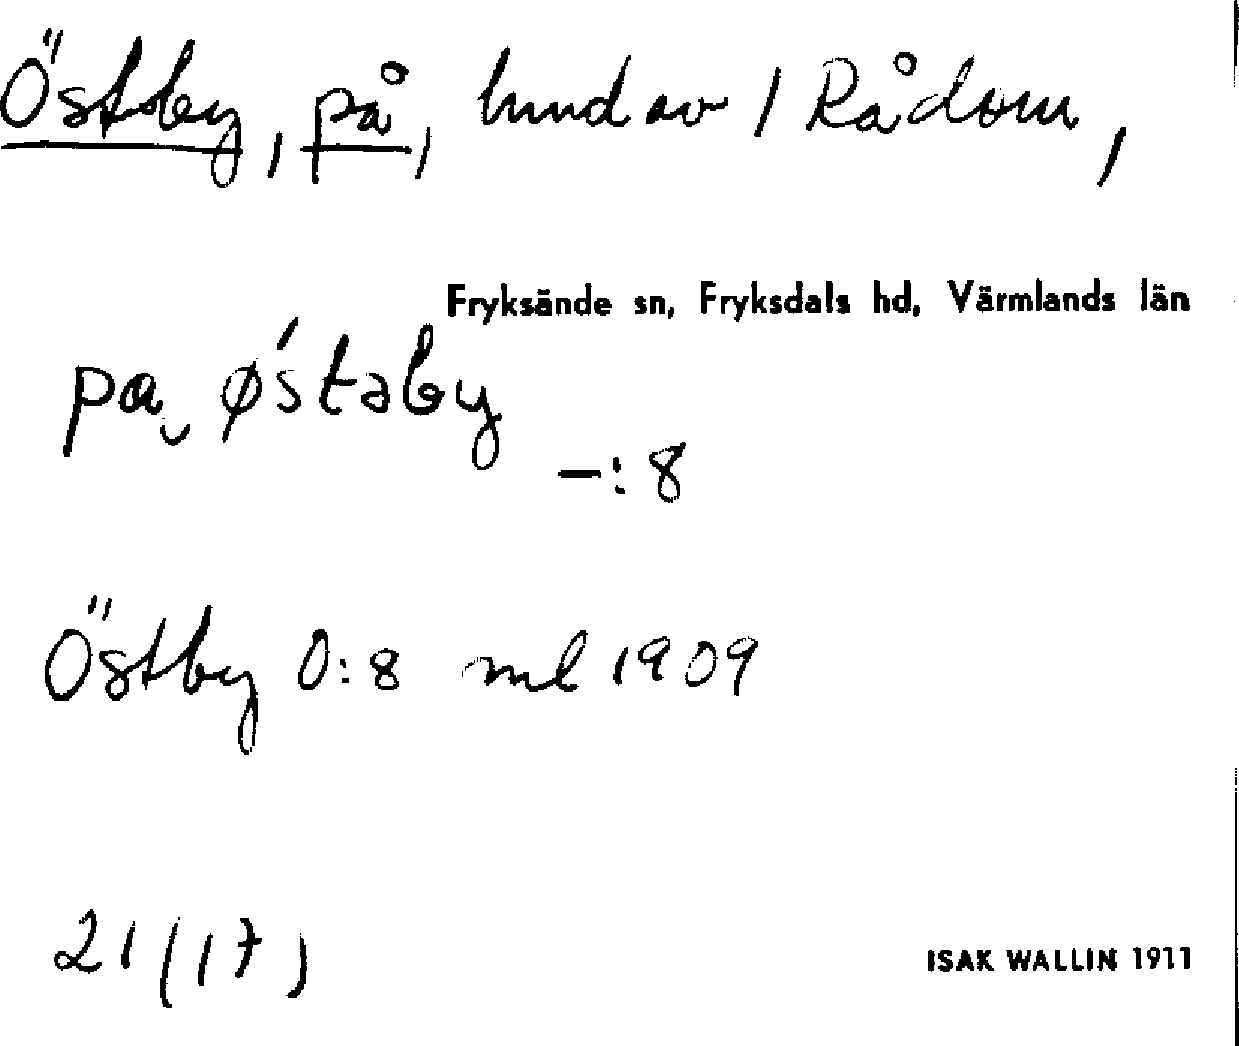 Östby, på, hmd av 1 Rådom,
Fryksände sn, Fryksdals hd, Värmlands län
pa ǿstaby
–: 8
Östby 0:8 ml 1909
21 (17)
ISAK WALLIN 1911